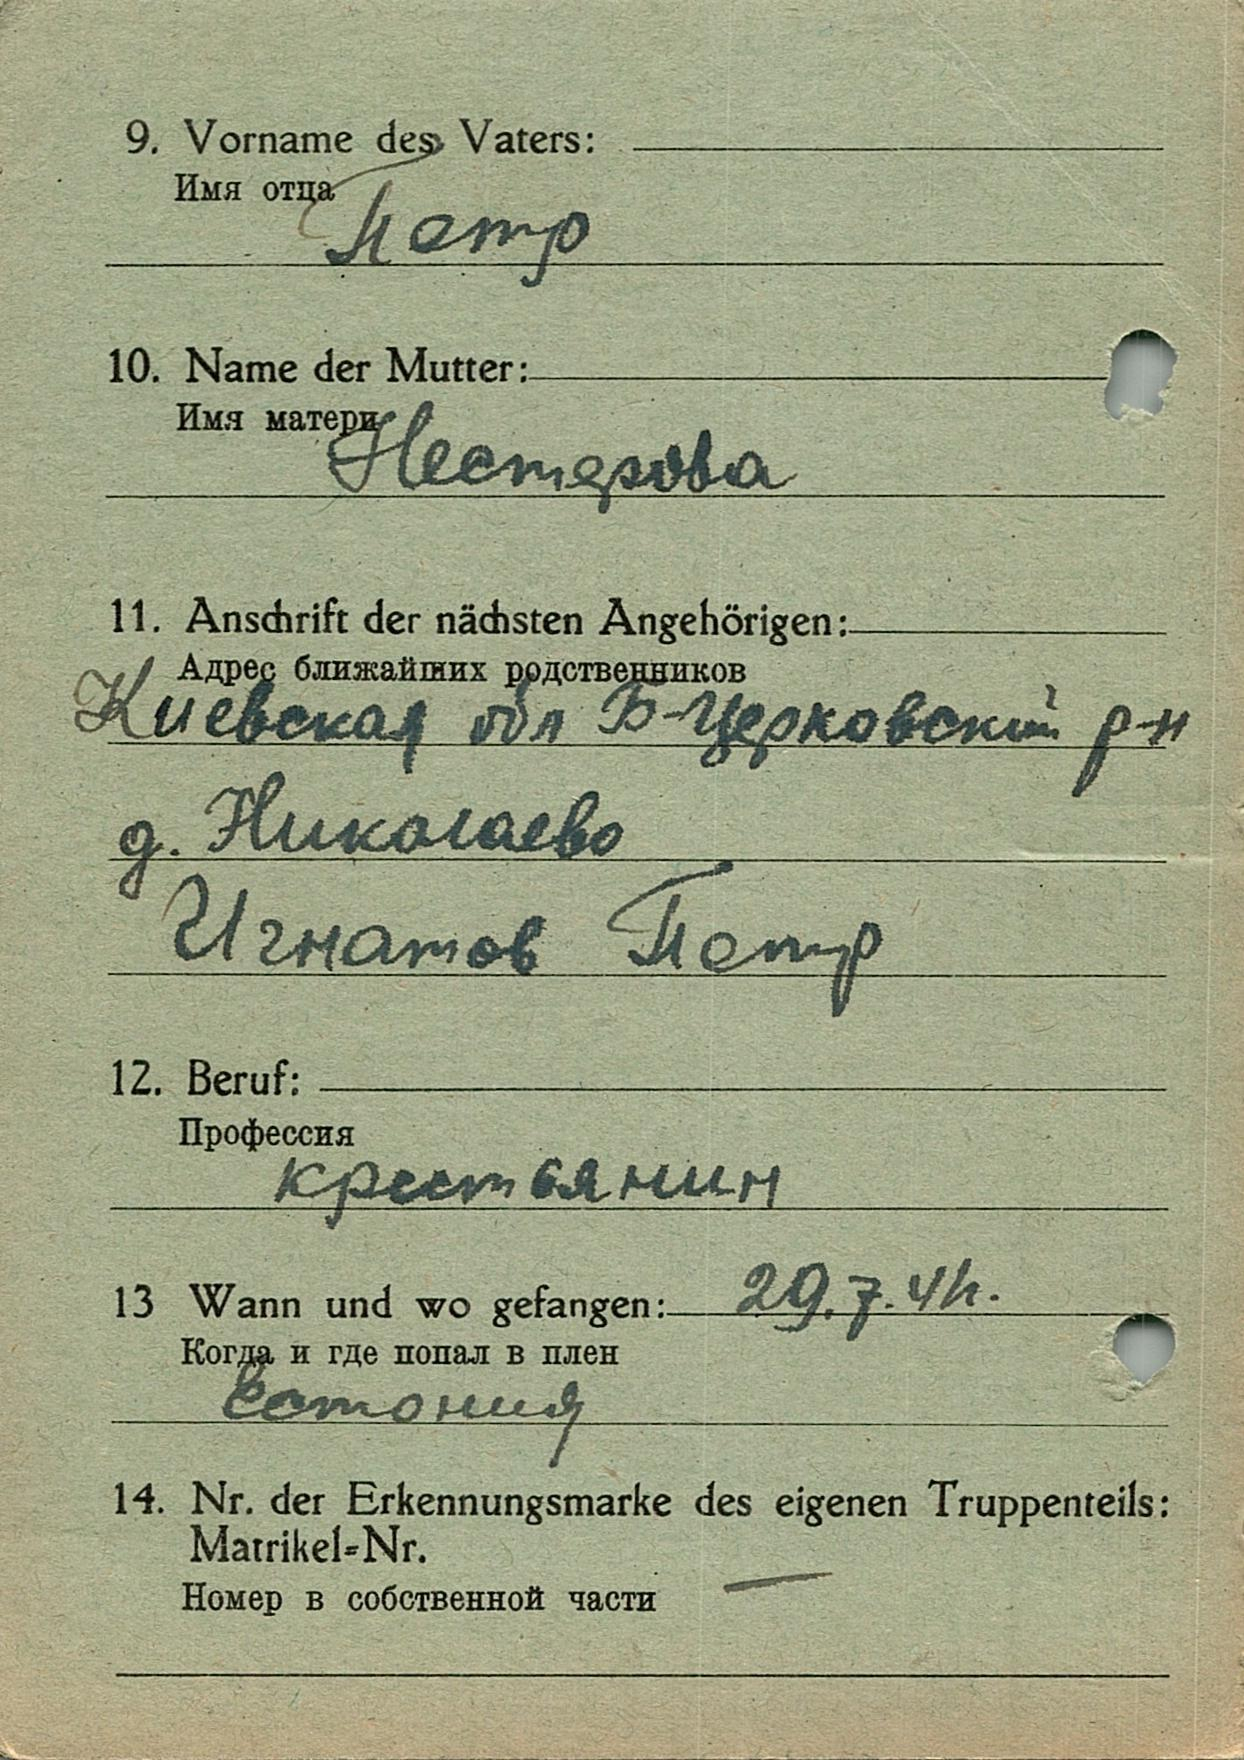 9. Vorname des Vaters:
Имя отца
Петр
10. Name der Mutter:
Имя матери
Нестерова
11. Anschrift der nächsten Angehörigen:
Адрес ближайших родственников
Киевская обл Б-Церковский р-н
д. Николаево
Игнатов Петр
12. Beruf:
Профессия
крестьянин
13 Wann und wo gefangen: 29.7.41.
Когда и где попал в плен
Естония
14. Nr. der Erkennungsmarke des eigenen Truppenteils:
Matrikel-Nr.
Номер в собственной части —